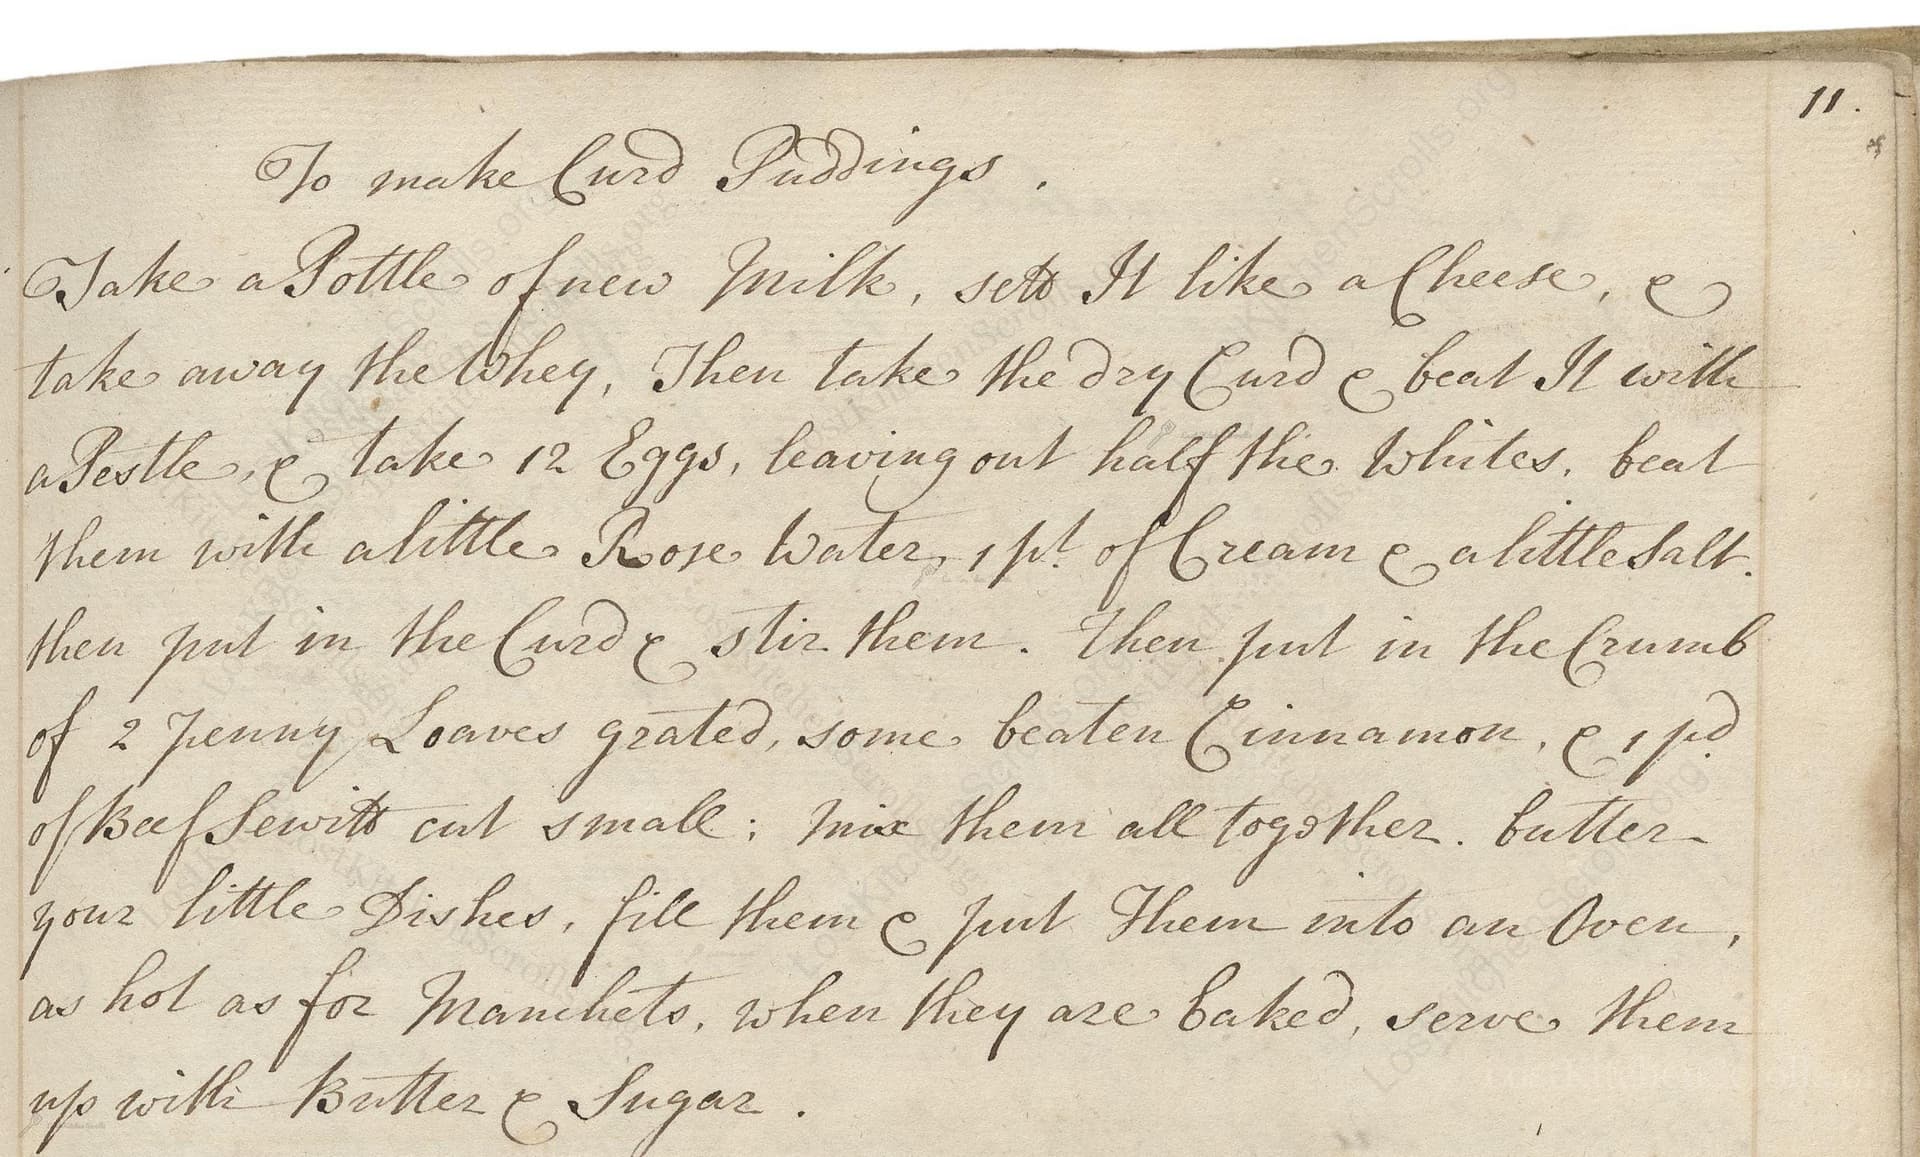 11.
To make Curd Puddings.
Take a Pottle of new Milk, sett It like a Cheese, &
take away the Whey, Then take the dry Curd & beat It with
a Pestle, & take 12 Eggs, leaving out half the Whites, beat
them with a little Rose Water, 1 pt. of Cream & a little Salt.
then put in the Curd & stir them. Then put in the Crumb
of 2 penny Loaves grated, some beaten Cinnamon, & 1 pd.
of Beef Sewitt cut small; Mix them all together. butter
your little Dishes, fill them & put Them into an Oven,
as hot as for Manchets, when they are baked, serve them
up with Butter & Sugar.